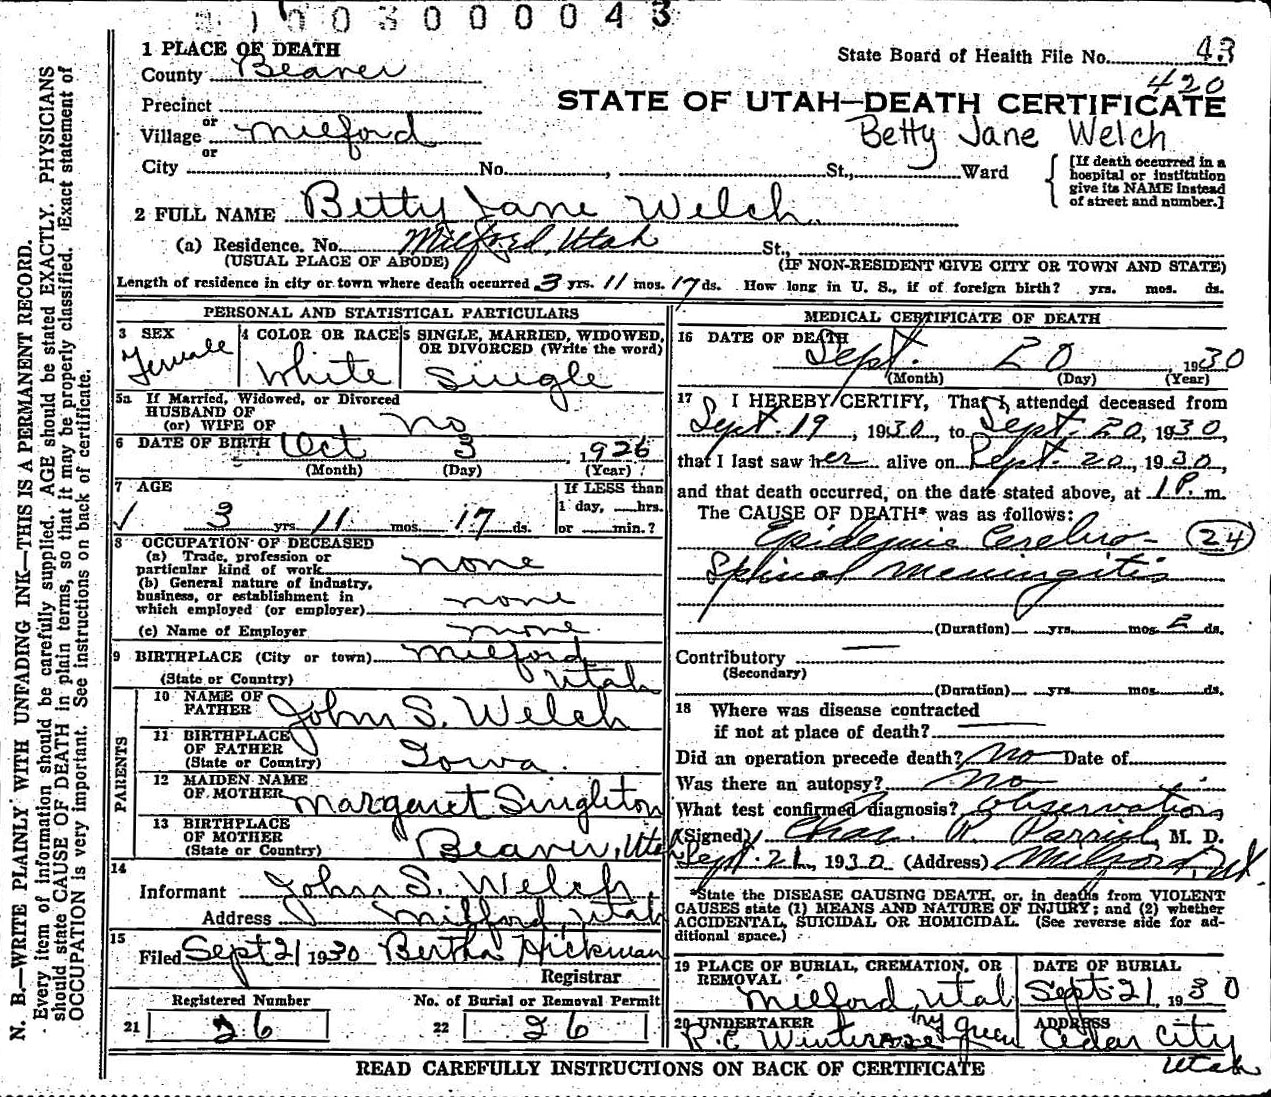 00300043
1 PLACE OF DEATH
County Beaver
State Board of Health File No. 43
420
Precinct
or
Village Milford
or
City No. , St., Ward
STATE OF UTAH—DEATH CERTIFICATE
Betty Jane Welch
[If death occurred in a
hospital or institution
give its NAME instead
of street and number.]
2 FULL NAME Betty Jane Welch
(a) Residence. No. Milford, Utah St.,
(USUAL PLACE OF ABODE) (IF NON-RESIDENT GIVE CITY OR TOWN AND STATE)
Length of residence in city or town where death occurred 3 yrs. 11 mos. 17 ds. How long in U. S., if of foreign birth? yrs. mos. ds.
PERSONAL AND STATISTICAL PARTICULARS
3 SEX
Female
4 COLOR OR RACE
White
5 SINGLE, MARRIED, WIDOWED,
OR DIVORCED (Write the word)
Single
5a If Married, Widowed, or Divorced
HUSBAND OF
(or) WIFE OF no
6 DATE OF BIRTH Oct 3 1926
(Month) (Day) (Year)
7 AGE
3 yrs. 11 mos. 17 ds.
If LESS than
1 day, hrs.
or min.?
8 OCCUPATION OF DECEASED
(a) Trade, profession or
particular kind of work none
(b) General nature of industry,
business, or establishment in
which employed (or employer) none
(c) Name of Employer none
9 BIRTHPLACE (City or town) Milford
(State or Country) Utah
PARENTS
10 NAME OF
FATHER John S. Welch
11 BIRTHPLACE
OF FATHER
(State or Country) Iowa.
12 MAIDEN NAME
OF MOTHER Margaret Singleton
13 BIRTHPLACE
OF MOTHER
(State or Country) Beaver, Utah
14
Informant John S. Welch
Address Milford Utah
15
Filed Sept 21 1930 Bertha Hickman
Registrar
Registered Number
21 26
No. of Burial or Removal Permit
22 26
MEDICAL CERTIFICATE OF DEATH
16 DATE OF DEATH
Sept. 20 1930
(Month) (Day) (Year)
17 I HEREBY CERTIFY, That I attended deceased from
Sept. 19, 1930, to Sept. 20, 1930,
that I last saw her alive on Sept. 20, 1930,
and that death occurred, on the date stated above, at 1 P. m.
The CAUSE OF DEATH* was as follows:
Epidemic Cerebro- 24
Spinal Meningitis
(Duration) yrs. mos. 2 ds.
Contributory
(Secondary)
(Duration) yrs. mos. ds.
18 Where was disease contracted
if not at place of death?
Did an operation precede death? no Date of
Was there an autopsy? no
What test confirmed diagnosis? observation
(Signed) Chas. R. Parrish, M. D.
Sept. 21, 1930 (Address) Milford, Ut.
*State the DISEASE CAUSING DEATH, or, in deaths from VIOLENT
CAUSES state (1) MEANS AND NATURE OF INJURY; and (2) whether
ACCIDENTAL, SUICIDAL OR HOMICIDAL. (See reverse side for ad-
ditional space.)
19 PLACE OF BURIAL, CREMATION, OR
REMOVAL
Milford, Utah
DATE OF BURIAL
Sept. 21, 1930
20 UNDERTAKER
R.C. Winterose by Green
ADDRESS
Cedar City
Utah
READ CAREFULLY INSTRUCTIONS ON BACK OF CERTIFICATE
N. B.—WRITE PLAINLY WITH UNFADING INK—THIS IS A PERMANENT RECORD.
Every item of information should be carefully supplied. AGE should be stated EXACTLY. PHYSICIANS
should state CAUSE OF DEATH in plain terms, so that it may be properly classified. Exact statement of
OCCUPATION is very important. See instructions on back of certificate.